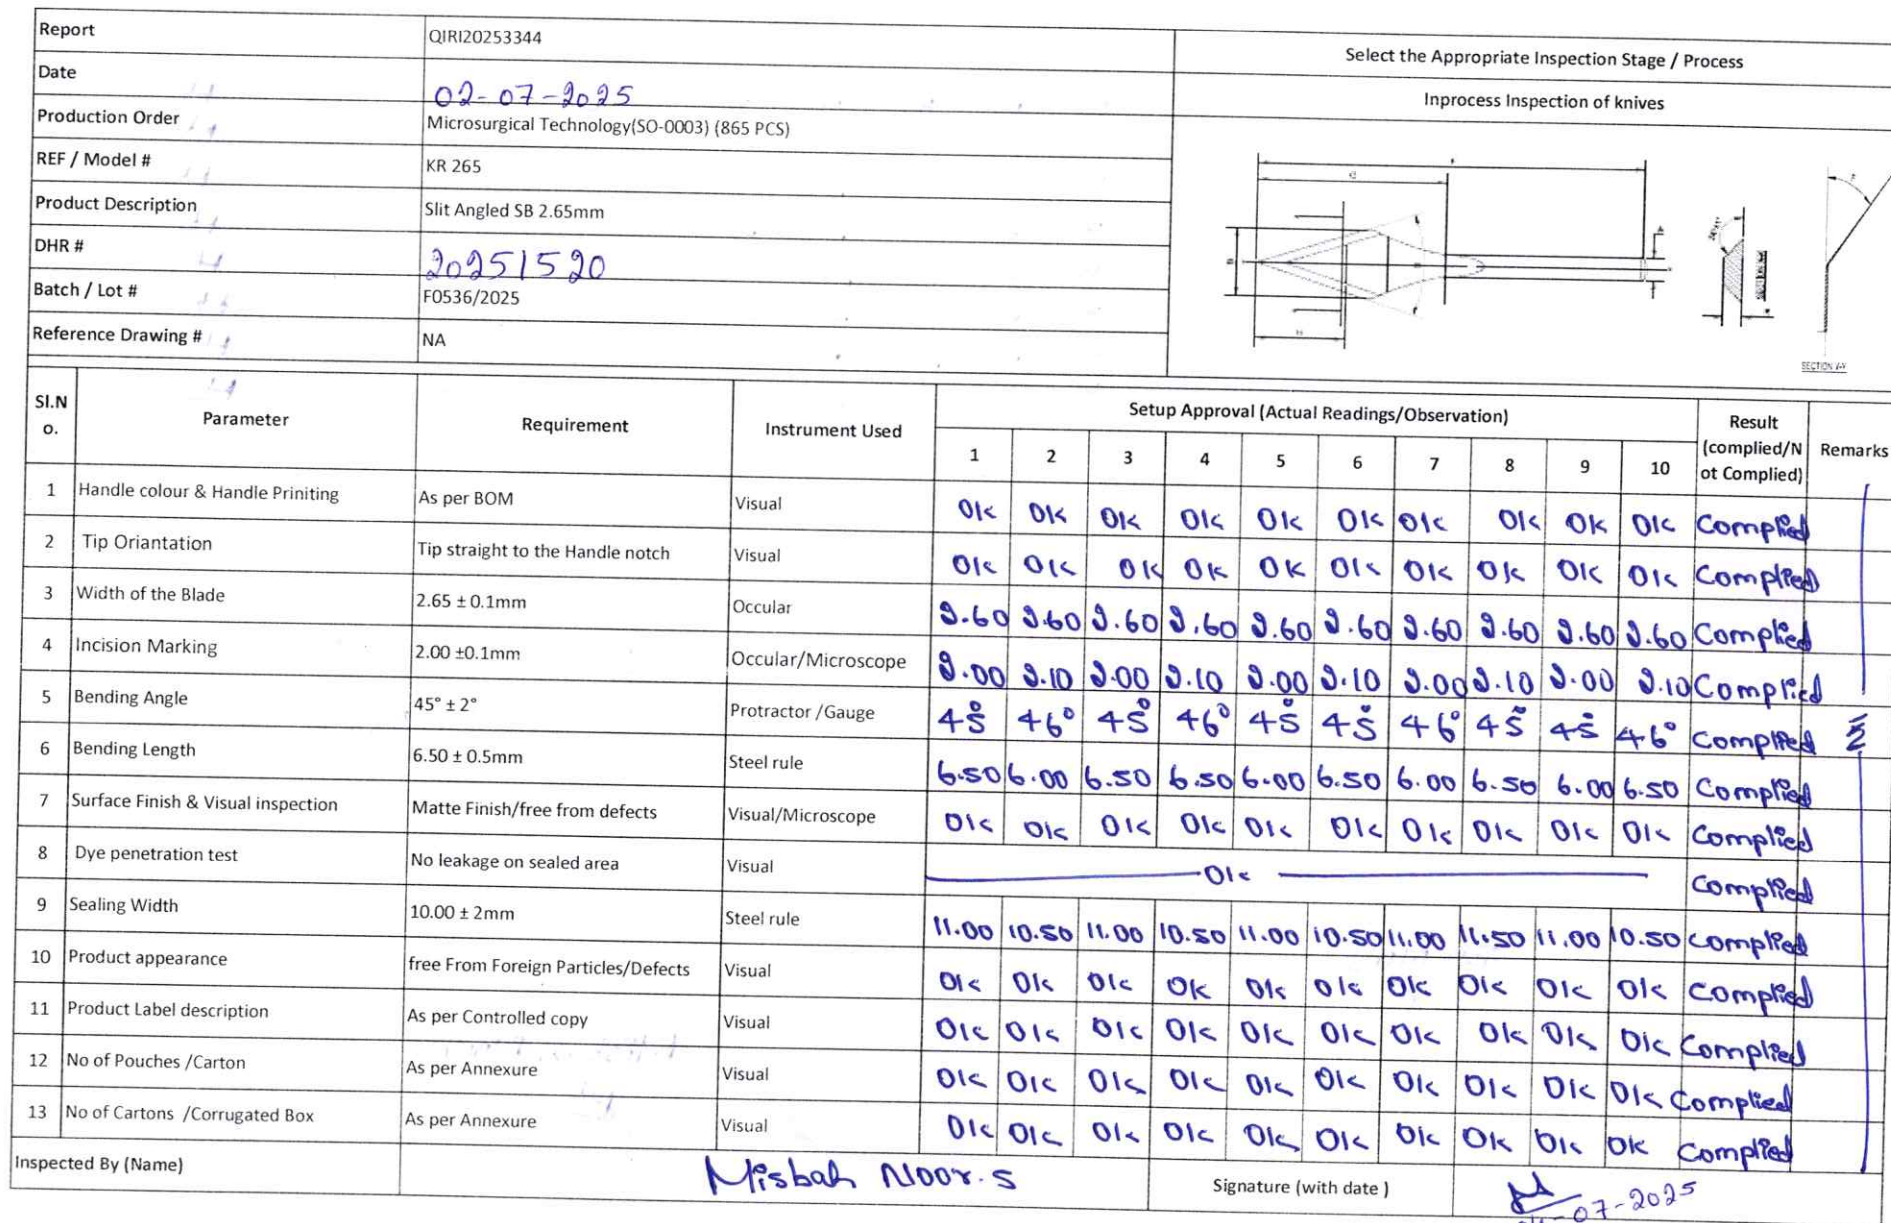 Report QIRI20253344
Select the Appropriate Inspection Stage / Process
Date 02-07-2025
Inprocess Inspection of knives
Production Order Microsurgical Technology(SO-0003) (865 PCS)
REF / Model # KR 265
Product Description Slit Angled SB 2.65mm
DHR # 20251520
Batch / Lot # F0536/2025
Reference Drawing # NA
SECTION Y-Y
Sl.No. Parameter Requirement Instrument Used Setup Approval (Actual Readings/Observation) Result (complied/Not Complied) Remarks
1 2 3 4 5 6 7 8 9 10
1 Handle colour & Handle Priniting As per BOM Visual OK OK OK OK OK OK OK OK OK OK Complied
2 Tip Oriantation Tip straight to the Handle notch Visual OK OK OK OK OK OK OK OK OK OK Complied
3 Width of the Blade 2.65 ± 0.1mm Occular 2.60 2.60 2.60 2.60 2.60 2.60 2.60 2.60 2.60 2.60 Complied
4 Incision Marking 2.00 ±0.1mm Occular/Microscope 2.00 2.10 2.00 2.10 2.00 2.10 2.00 2.10 2.00 2.10 Complied
5 Bending Angle 45° ± 2° Protractor /Gauge 45° 46° 45° 46° 45° 45° 46° 45° 45° 46° Complied
6 Bending Length 6.50 ± 0.5mm Steel rule 6.50 6.00 6.50 6.50 6.00 6.50 6.00 6.50 6.00 6.50 Complied
7 Surface Finish & Visual inspection Matte Finish/free from defects Visual/Microscope OK OK OK OK OK OK OK OK OK OK Complied
8 Dye penetration test No leakage on sealed area Visual OK Complied
9 Sealing Width 10.00 ± 2mm Steel rule 11.00 10.50 11.00 10.50 11.00 10.50 11.00 11.50 11.00 10.50 Complied
10 Product appearance free From Foreign Particles/Defects Visual OK OK OK OK OK OK OK OK OK OK Complied
11 Product Label description As per Controlled copy Visual OK OK OK OK OK OK OK OK OK OK Complied
12 No of Pouches /Carton As per Annexure Visual OK OK OK OK OK OK OK OK OK OK Complied
13 No of Cartons /Corrugated Box As per Annexure Visual OK OK OK OK OK OK OK OK OK OK Complied
Inspected By (Name) Misbah Noor.S Signature (with date ) 07-2025